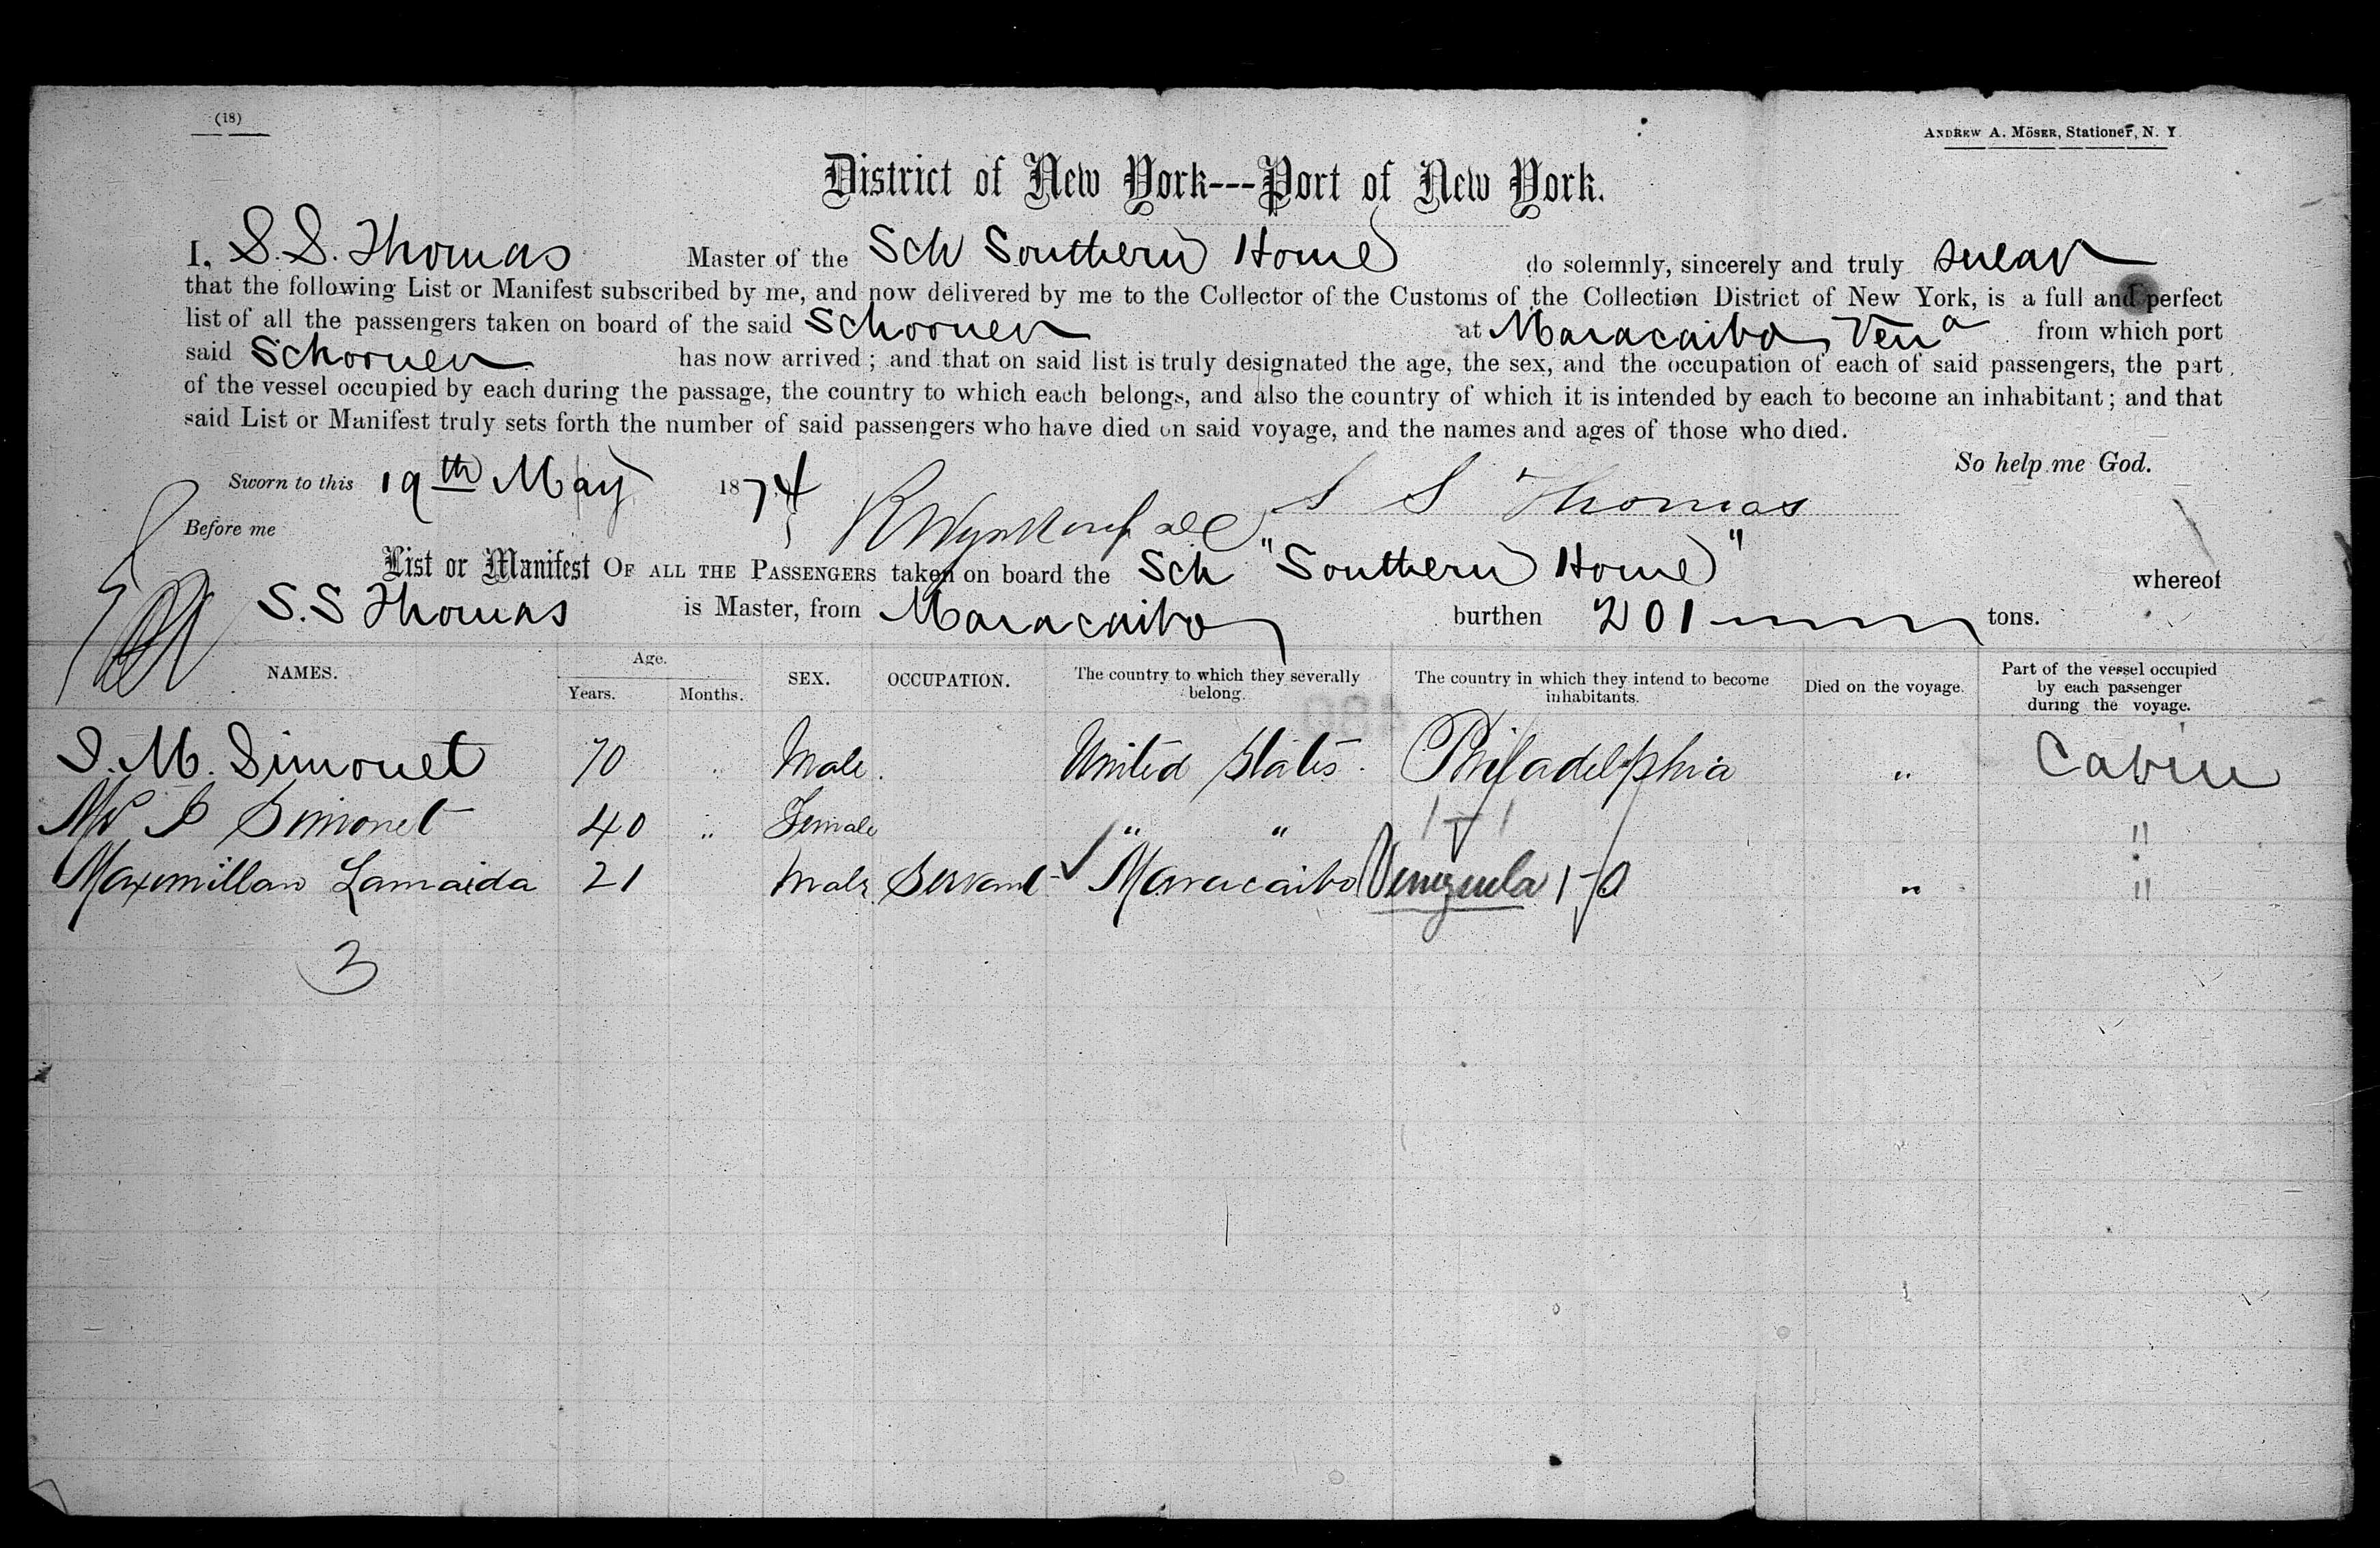 (18)
ANDREW A. MÖSER, Stationer, N. Y.
District of New York---Port of New York.
I, S. S. Thomas Master of the Sch Southern Home do solemnly, sincerely and truly swear
that the following List or Manifest subscribed by me, and now delivered by me to the Collector of the Customs of the Collection District of New York, is a full and perfect
list of all the passengers taken on board of the said Schooner at Maracaibo, Vena from which port
said Schooner has now arrived; and that on said list is truly designated the age, the sex, and the occupation of each of said passengers, the part
of the vessel occupied by each during the passage, the country to which each belongs, and also the country of which it is intended by each to become an inhabitant; and that
said List or Manifest truly sets forth the number of said passengers who have died on said voyage, and the names and ages of those who died.
So help me God.
Sworn to this 19th May 1874 S S Thomas
Before me
List or Manifest OF ALL THE PASSENGERS taken on board the Sch "Southern Home" whereof
S. S Thomas is Master, from Maracaibo burthen 201 tons.
NAMES. Age. Years. Months. SEX. OCCUPATION. The country to which they severally belong. The country in which they intend to become inhabitants. Died on the voyage. Part of the vessel occupied by each passenger during the voyage.
S. M. Simonet 70 " Male. United States. Philadelphia " Cabin
S Simonet 40 " Female " " 1-1 "
Maxemillan Lamaida 21 Male Servant Maracaibo Venezuela 1-0 " "
3